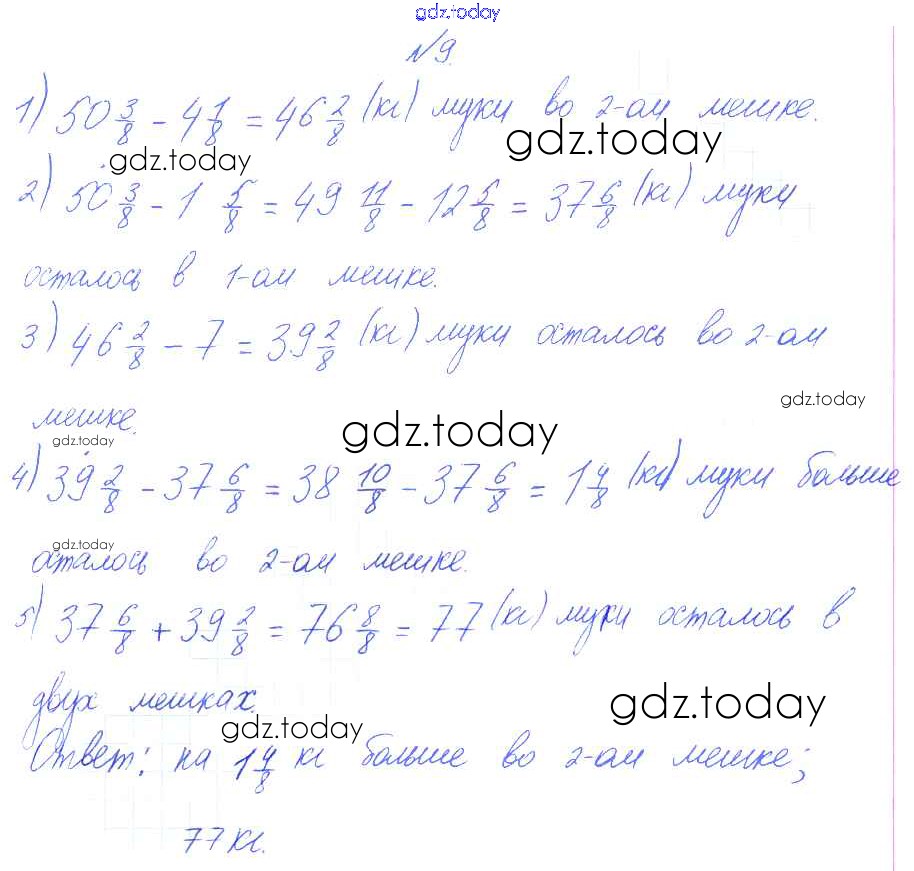 gdz.today
№9.
1) 50 3/8 - 4 1/8 = 46 2/8 (кг) муки во 2-ом мешке.
gdz.today
gdz.today
2) 50 3/8 - 1 5/8 = 49 11/8 - 12 5/8 = 37 6/8 (кг) муки
осталось в 1-ом мешке.
3) 46 2/8 - 7 = 39 2/8 (кг) муки осталось во 2-ом
gdz.today
мешке.
gdz.today
gdz.today
4) 39 2/8 - 37 6/8 = 38 10/8 - 37 6/8 = 1 4/8 (кг) муки больше
gdz.today
осталось во 2-ом мешке.
5) 37 6/8 + 39 2/8 = 76 8/8 = 77 (кг) муки осталось в
двух мешках.
gdz.today
gdz.today
Ответ: на 1 4/8 кг больше во 2-ом мешке;
77 кг.